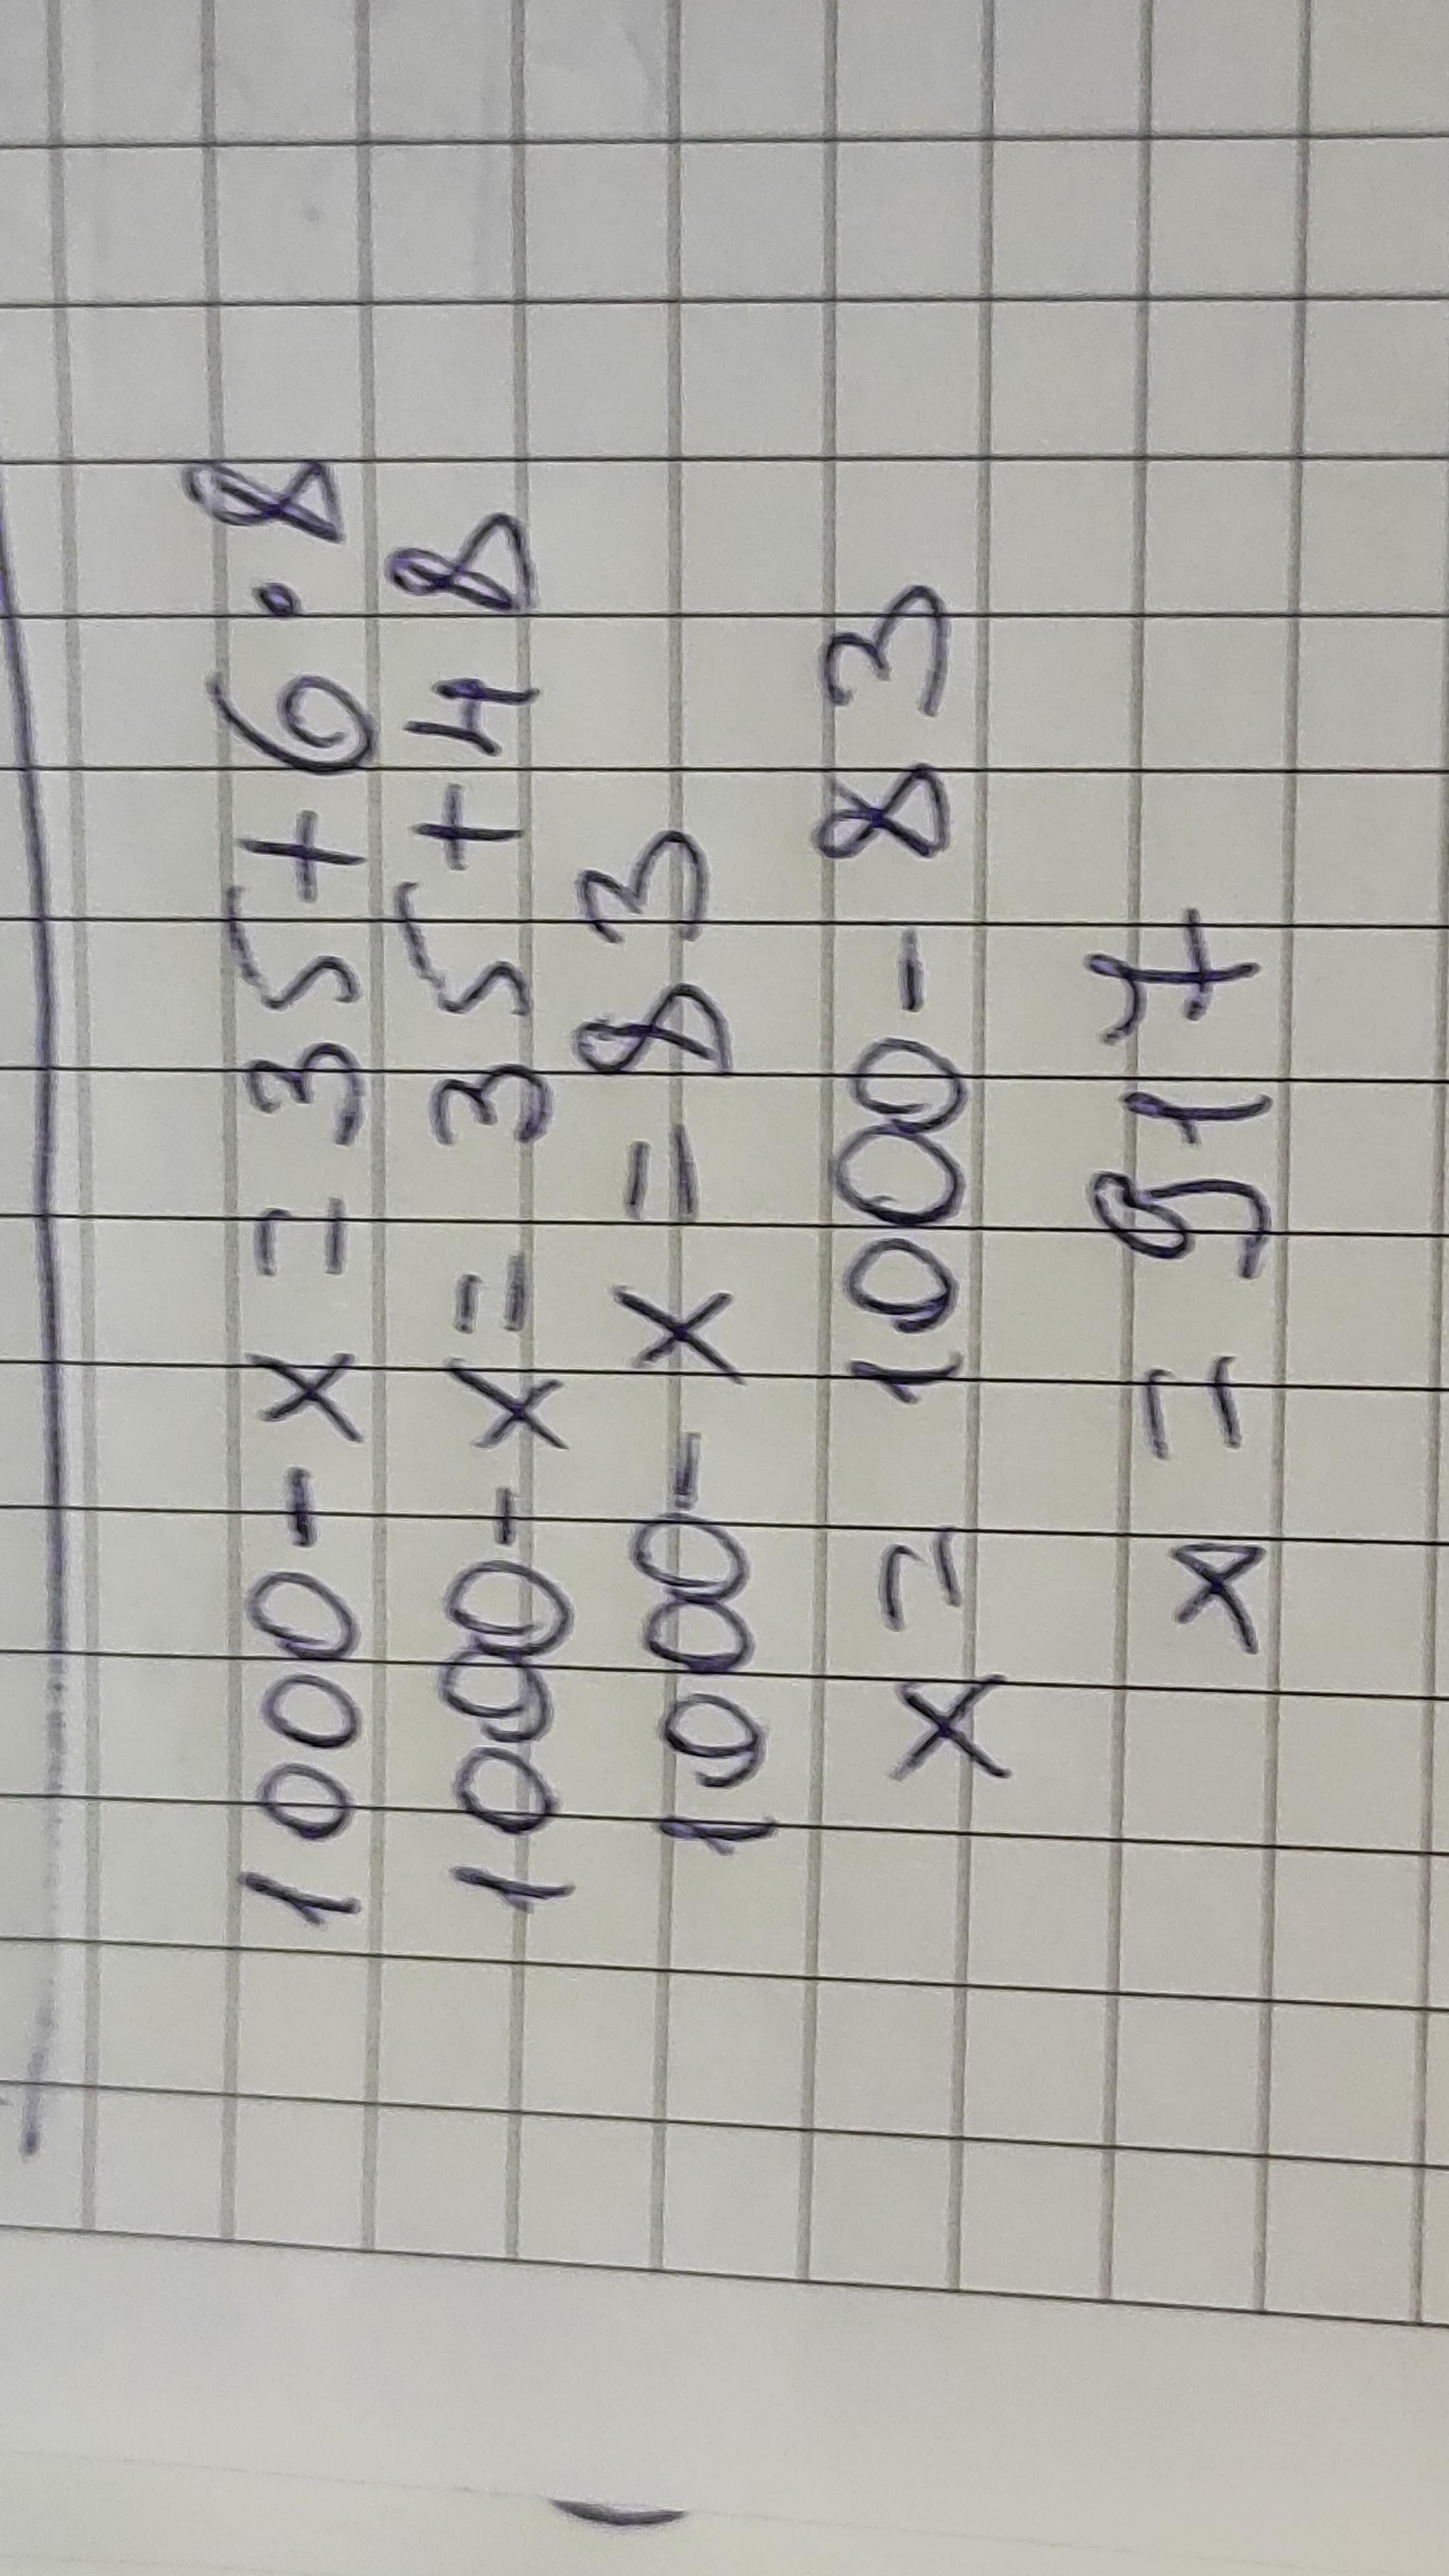 1000 - x = 35 + 6 · 8
1000 - x = 35 + 48
1000 - x = 83
x = 1000 - 83
x = 917